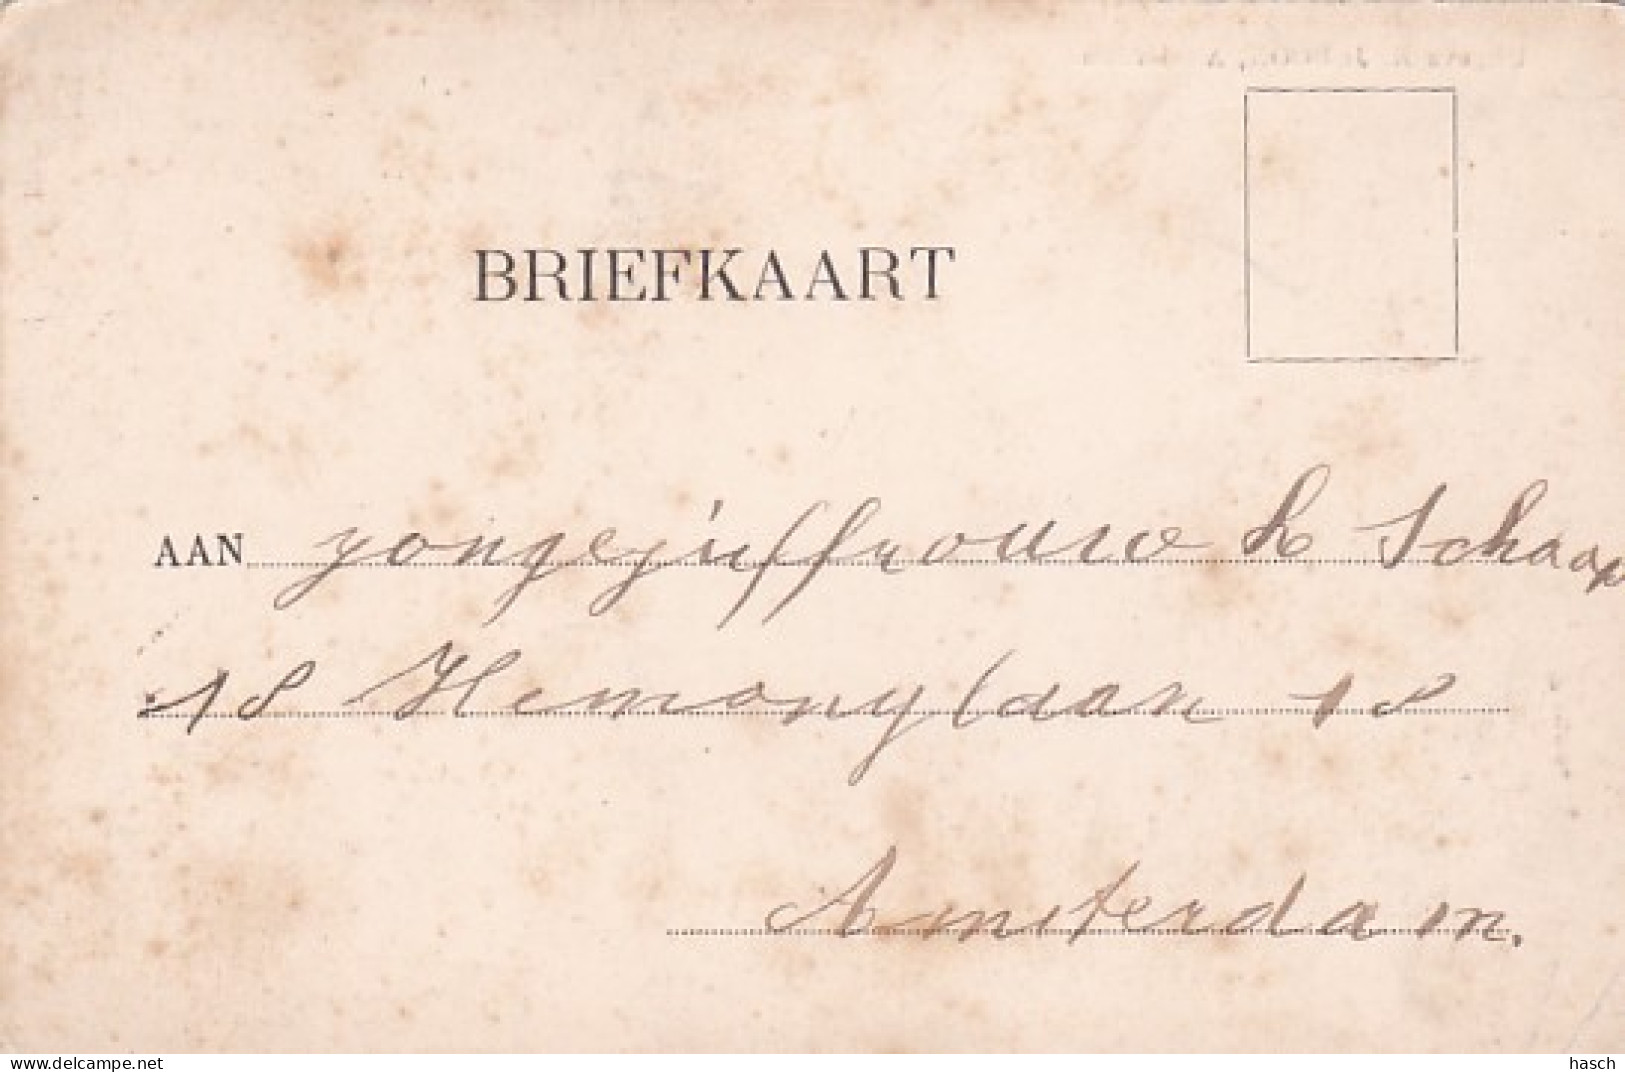 BRIEFKAART
AAN yongejuffrouw L Schaap
18 Hemonylaan 18
Amsterdam.
delcampe.net
hasch